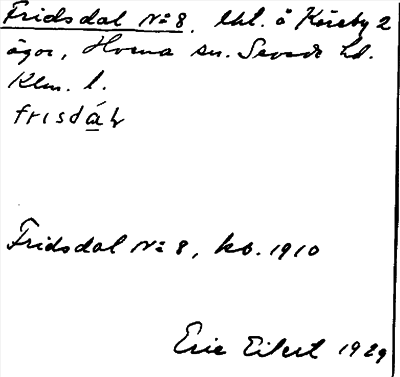 Fridsdal No 8, lht. åKöreby 2
ägor, Hvena sn. Sevede hd.
Klm. l.
frisdáḷ
Fridsdal No 8, kb. 1910
Eric Eilert 1929